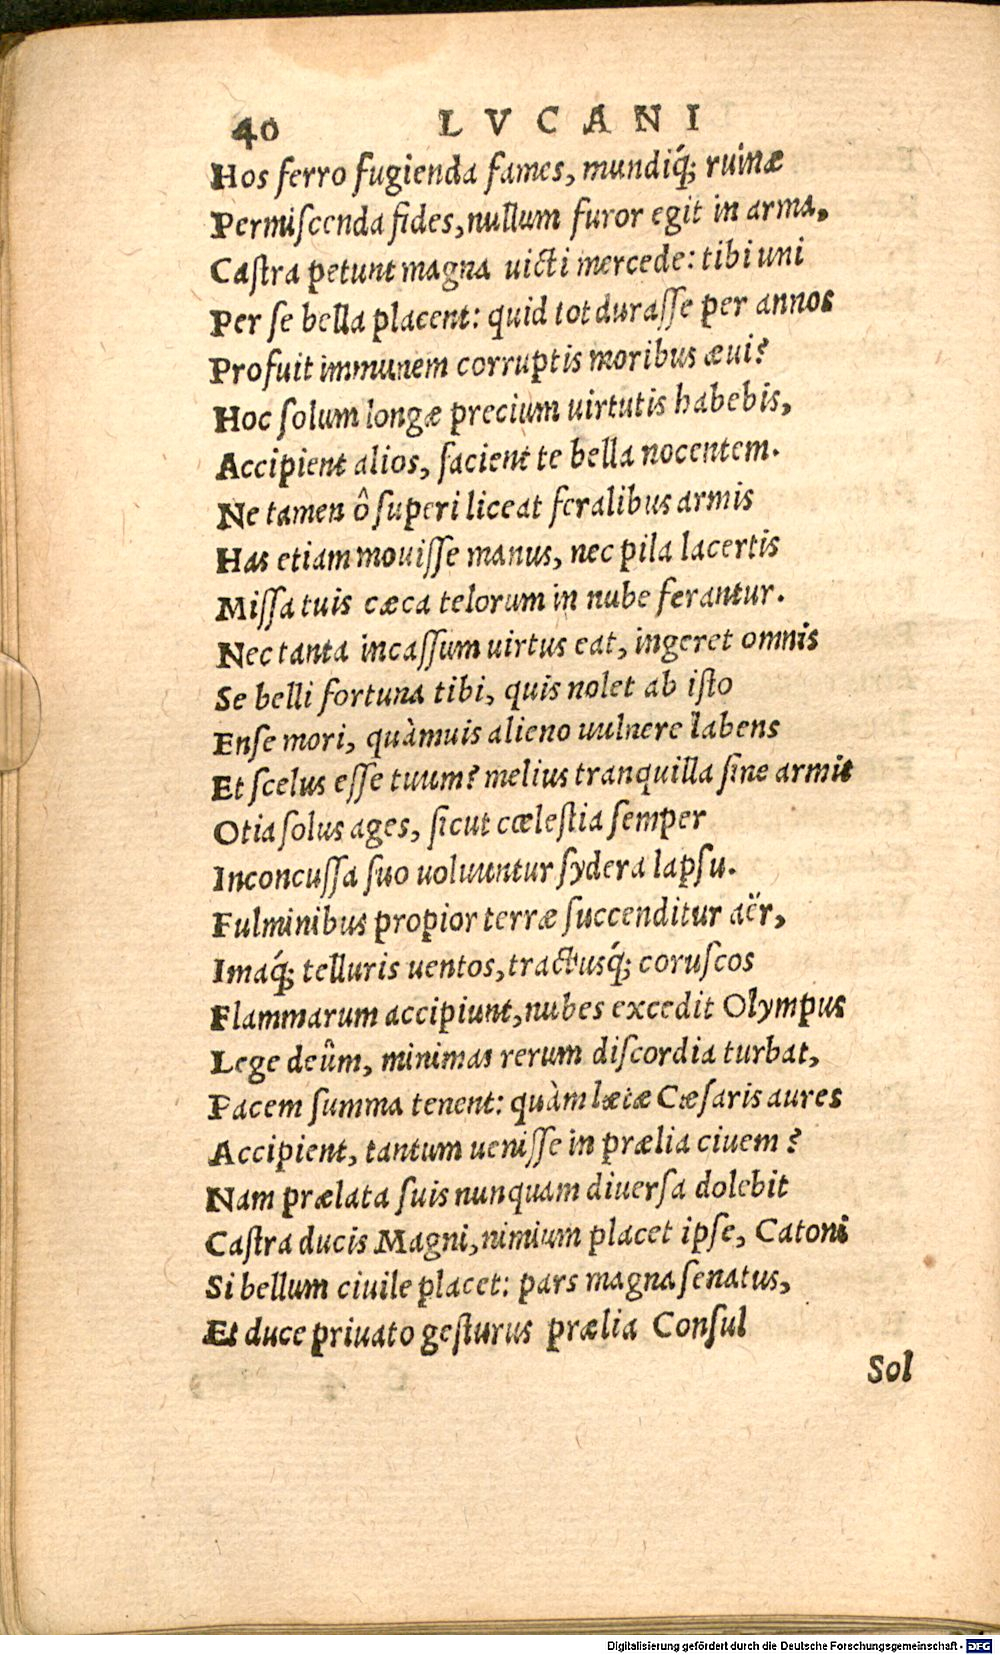 40 LVCANI
Hos ferro fugienda fames, mundiq́; ruinæ
Permiſcenda fides, nullum furor egit in arma,
Caſtra petunt magna uicti mercede: tibi uni
Per ſe bella placent: quid tot duraſſe per annos
Profuit immunem corruptis moribus æui?
Hoc ſolum longæ precium uirtutis habebis,
Accipient alios, facient te bella nocentem.
Ne tamen ô ſuperi liceat feralibus armis
Has etiam mouiſſe manus, nec pila lacertis
Miſſa tuis cæca telorum in nube ferantur.
Nec tanta incaſſum uirtus eat, ingeret omnis
Se belli fortuna tibi, quis nolet ab iſto
Enſe mori, quàmuis alieno uulnere labens
Et ſcelus eſſe tuum? melius tranquilla ſine armis
Otia ſolus ages, ſicut cœleſtia ſemper
Inconcuſſa ſuo uoluuntur ſydera lapſu.
Fulminibus propior terræ ſuccenditur aër,
Imaq́; telluris uentos, tractusq́; coruſcos
Flammarum accipiunt, nubes excedit Olympus
Lege deûm, minimas rerum diſcordia turbat,
Pacem ſumma tenent: quàm lætæ Cæſaris aures
Accipient, tantum ueniſſe in prælia ciuem?
Nam prælata ſuis nunquam diuerſa dolebit
Caſtra ducis Magni, nimium placet ipſe, Catoni
Si bellum ciuile placet: pars magna ſenatus,
Et duce priuato geſturus prælia Conſul
Sol
Digitalisierung gefördert durch die Deutsche Forschungsgemeinschaft - DFG